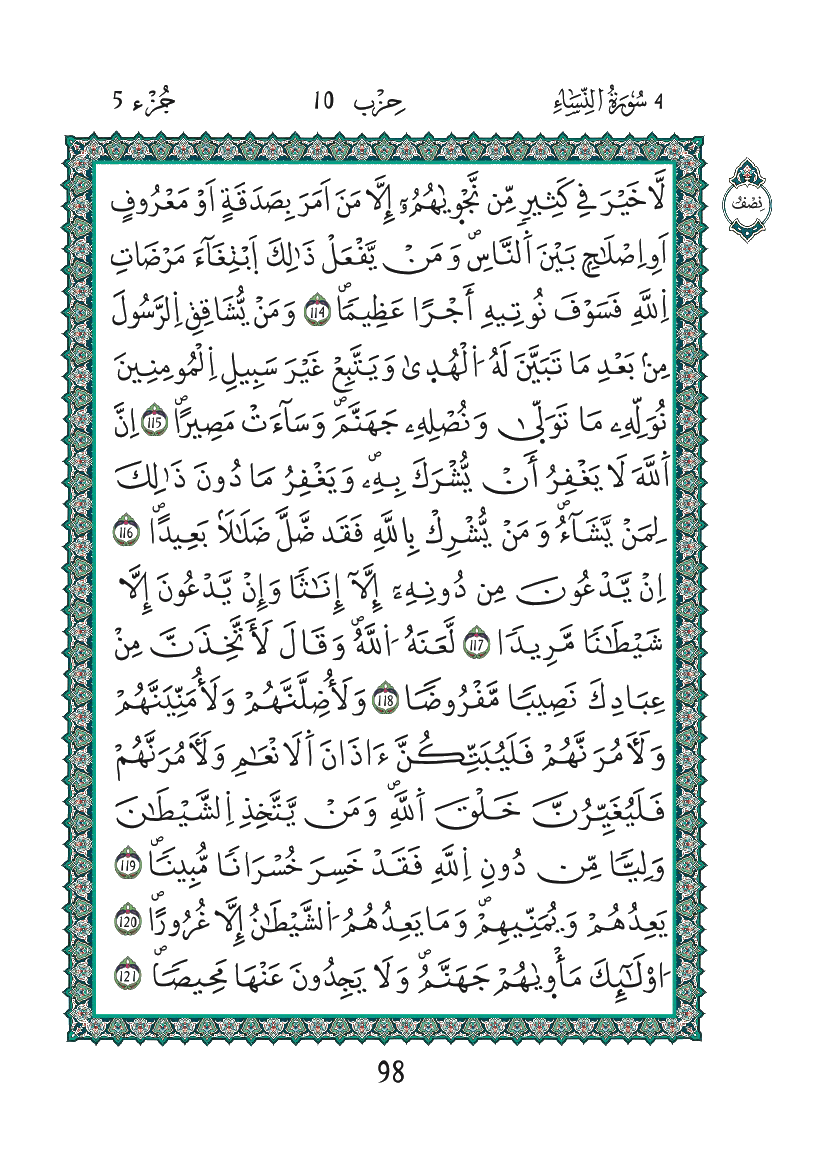 4 سُورَةُ النِّسَاءِ حِزْب 10 جُزْء 5
نِصْفُ
لَّا خَيْرَ فِے كَثِيرٍ مِّن نَّجْو۪يٰهُمُۥٓ إِلَّا مَنَ اَمَرَ بِصَدَقَةٍ اَوْ مَعْرُوفٍ
اَوِ اِصْلَٰحِۢ بَيْنَ اَ۬لنَّاسِۖ وَمَنْ يَّفْعَلْ ذَٰلِكَ اَ۪بْتِغَآءَ مَرْضَاتِ
اِ۬للَّهِ فَسَوْفَ نُوتِيهِ أَجْرًا عَظِيمٗاۖ 114 وَمَنْ يُّشَاقِقِ اِ۬لرَّسُولَ
مِنۢ بَعْدِ مَا تَبَيَّنَ لَهُ اُ۬لْهُد۪يٰ وَيَتَّبِعْ غَيْرَ سَبِيلِ اِ۬لْمُومِنِينَ
نُوَلِّهِۦ مَا تَوَلّ۪يٰ وَنُصْلِهِۦ جَهَنَّمَۖ وَسَآءَتْ مَصِيراًۖ 115 اِنَّ
اَ۬للَّهَ لَا يَغْفِرُ أَنْ يُّشْرَكَ بِهِۦۖ وَيَغْفِرُ مَا دُونَ ذَٰلِكَ
لِمَنْ يَّشَآءُۖ وَمَنْ يُّشْرِكْ بِاللَّهِ فَقَد ضَّلَّ ضَلَٰلَاۢ بَعِيداًۖ 116
اِنْ يَّدْعُونَ مِن دُونِهِۦٓ إِلَّآ إِنَٰثٗا وَإِنْ يَّدْعُونَ إِلَّا
شَيْطَٰنٗا مَّرِيدٗا 117 لَّعَنَهُ اُ۬للَّهُۖ وَقَالَ لَأَتَّخِذَنَّ مِنْ
عِبَادِكَ نَصِيبٗا مَّفْرُوضٗا 118 وَلَأُضِلَّنَّهُمْ وَلَأُمَنِّيَنَّهُمْ
وَلَأٓمُرَنَّهُمْ فَلَيُبَتِّكُنَّ ءَاذَانَ اَ۬لَانْعَٰمِ وَلَأٓمُرَنَّهُمْ
فَلَيُغَيِّرُنَّ خَلْقَ اَ۬للَّهِۖ وَمَنْ يَّتَّخِذِ اِ۬لشَّيْطَٰنَ
وَلِيّٗا مِّن دُونِ اِ۬للَّهِ فَقَدْ خَسِرَ خُسْرَانٗا مُّبِينٗاۖ 119
يَعِدُهُمْ وَيُمَنِّيهِمْۖ وَمَا يَعِدُهُمُ اُ۬لشَّيْطَٰنُ إِلَّا غُرُوراًۖ 120
اُوْلَٰٓئِكَ مَأْو۪يٰهُمْ جَهَنَّمُۖ وَلَا يَجِدُونَ عَنْهَا مَحِيصٗاۖ 121
98